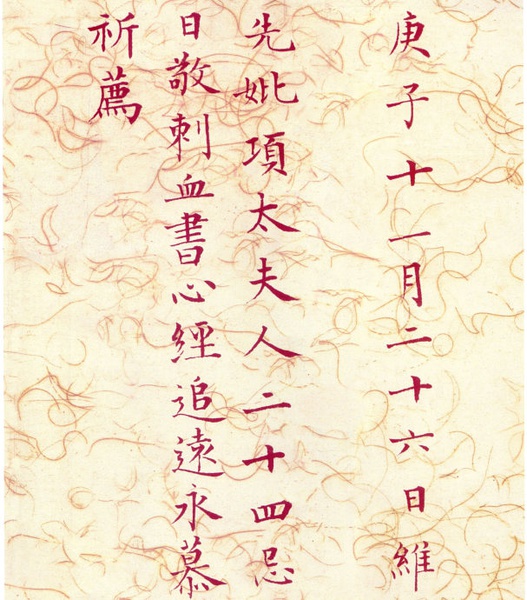 庚子十一月二十六日維
先妣項太夫人二十四忌
日敬刺血書心經追遠永慕
祈薦